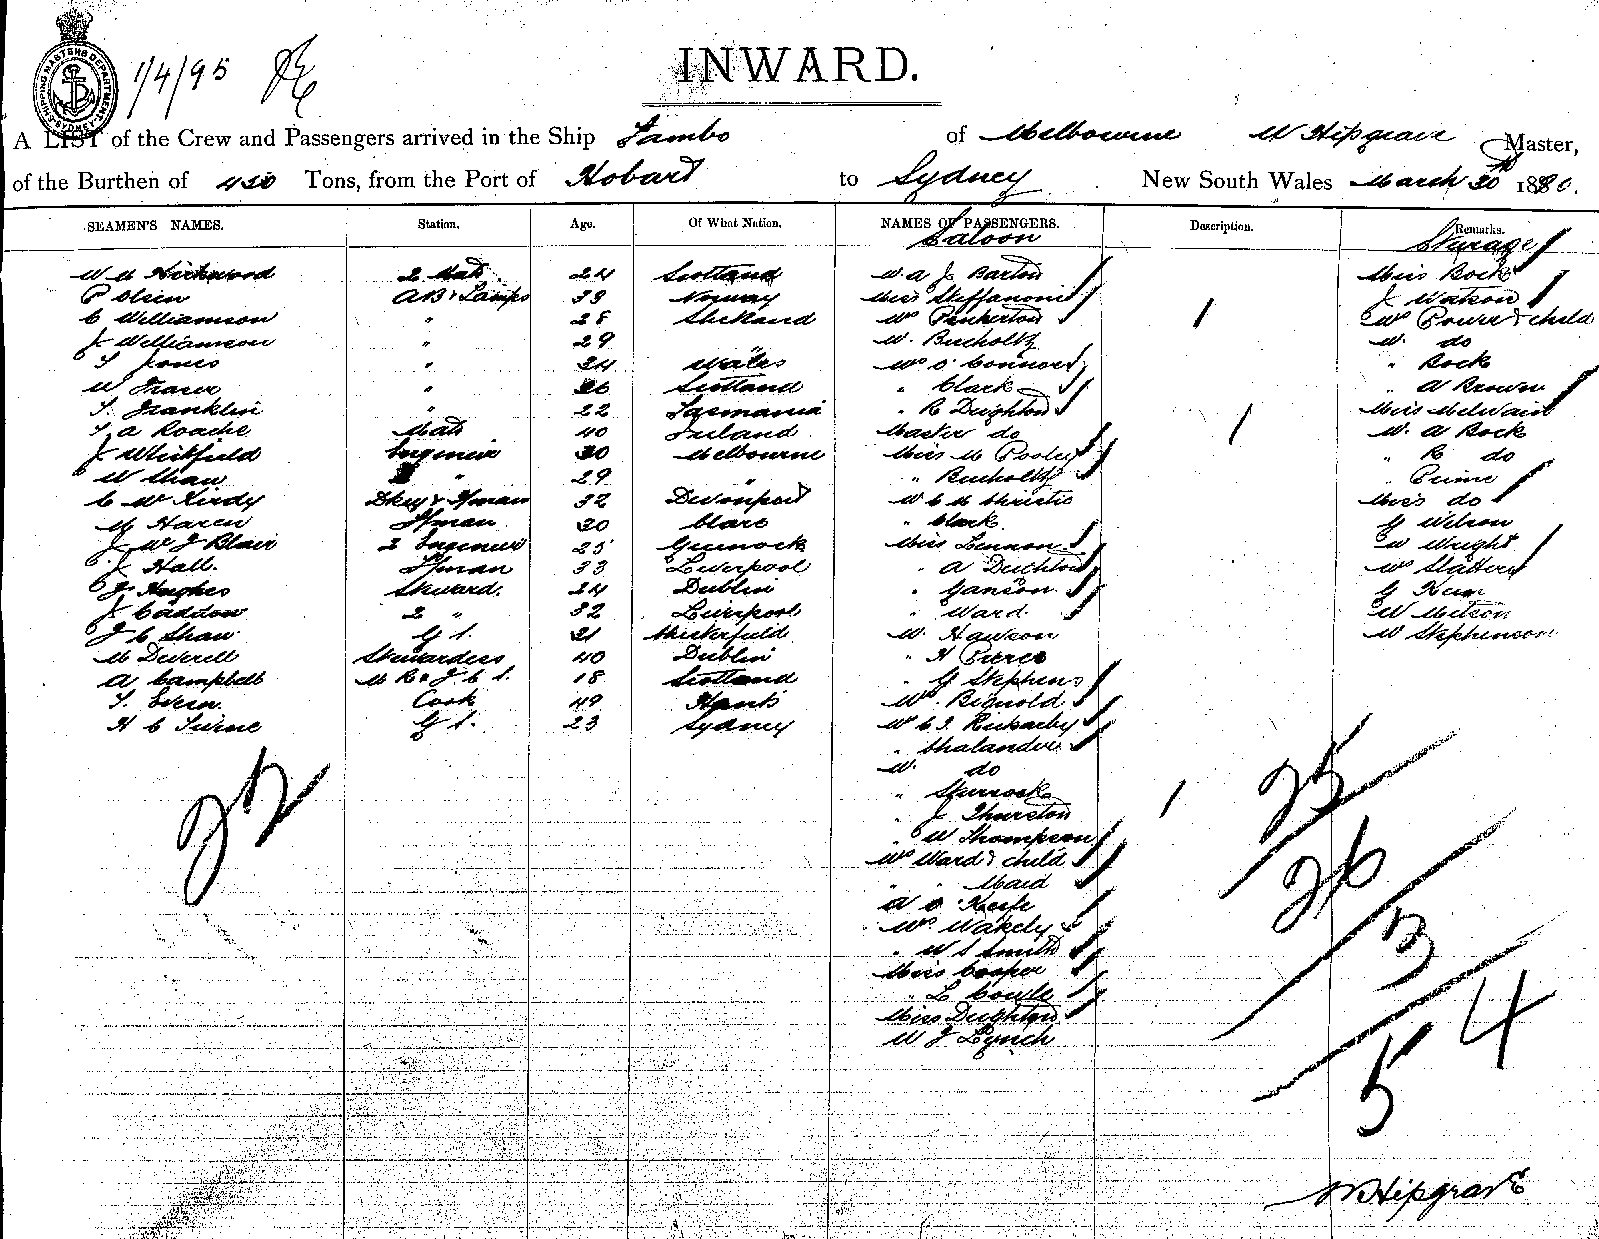 SHIPPING MASTERS DEPARTMENT SYDNEY
1/4/95
INWARD.
A LIST of the Crew and Passengers arrived in the Ship Tambo of Melbourne W Hipgrave Master,
of the Burthen of 450 Tons, from the Port of Hobart to Sydney New South Wales March 30th 1880.
SEAMEN'S NAMES. Station. Age. Of What Nation. NAMES OF PASSENGERS. Description. Remarks.
Saloon Steerage
W M Kirkwood 2 Mate 24 Scotland W. A J Barton Miss Bock
P Olsen AB & Lamps 33 Norway Miss Steffanoni J Watson
C Williamson " 28 Shetland Mrs Pinkerton Mrs Power & child
J Williamson " 29 W. Bucholtz W. do
T Jones " 24 Wales Mrs O'Connor " Bock
W Fraser " 26 Scotland " Clark " A Brown
T. Franklin " 22 Tasmania " R Deighton Miss McIwain
T A Roache Mate 40 Ireland Master do W. A Bock
J Whitfield Engineer 30 Melbourne Miss M Pooley " R do
W Shaw " 29 " Bucholtz " Prime
C W Kirdy Dkey & Fman 32 Devonport W C M Christie Miss do
M Haren Fman 30 Clare " Clark G Wilson
J W J Blair 2 Engineer 25 Greenock Miss Lennon W Wright
J Hall. Fman 33 Liverpool " A Deighton Mrs Slattery
J Hughes Steward. 24 Dublin " Ganson G Keen
J Caddow 2 " 32 Liverpool " Ward W Mitson
J C Shaw G S. 21 W. Hawson W Stephenson
M Deverell Stewardess 40 Dublin " H Pierce
A Campbell 18 Scotland " G Stephens
T. Cook 49 Hants Mrs Bignold
H C G S. 23 Sydney W C J. Rickarby
" Thalander
W. do
" Sturrock
" J Thurston
" W Thompson
Mrs Ward & child
" " Maid
A O'Keefe
Mrs. Wakely
" W S Smith
Miss Cooper
" L Cowle
Miss Deighton
W J Lynch
22
25
26
3
54
W Hipgrave